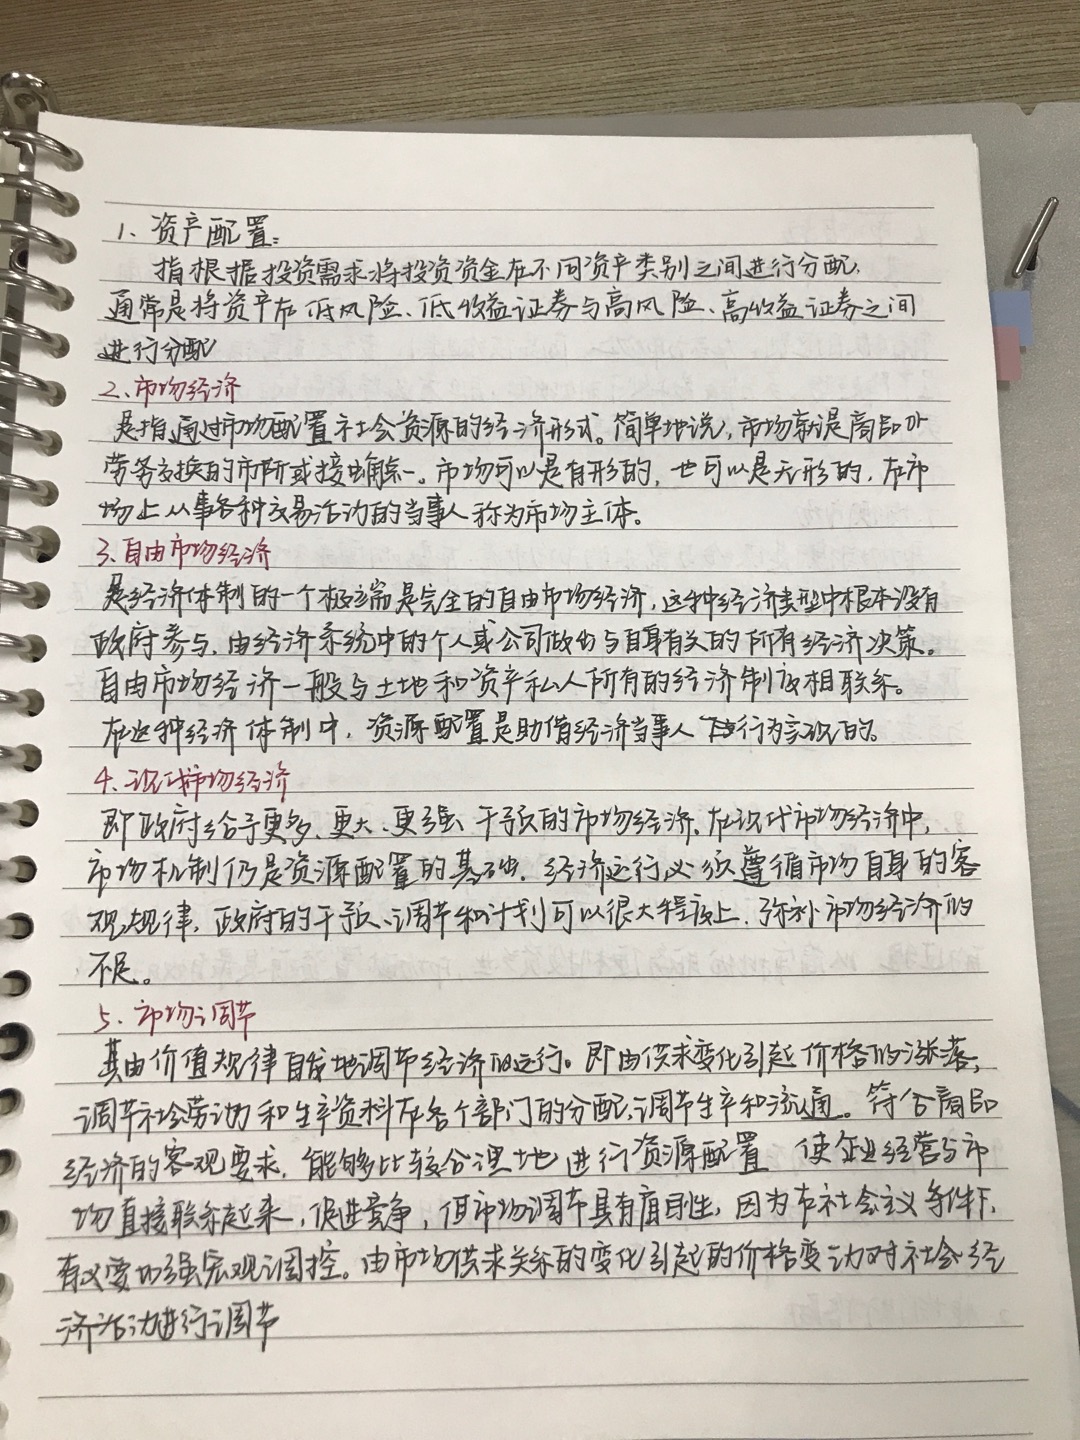 1、资产配置:
指根据投资需求将投资资金在不同资产类别之间进行分配,
通常是将资产在低风险、低收益证券与高风险、高收益证券之间
进行分配
2、市场经济
是指通过市场配置社会资源的经济形式。简单地说,市场就是商品或
劳务交换的市所或接触点。市场可以是有形的,也可以是无形的,在市
场上从事各种交易活动的当事人称为市场主体。
3、自由市场经济
是经济体制的一个极端是完全的自由市场经济,这种经济类型中根本没有
政府参与,由经济系统中的个人或公司做出与自身有关的所有经济决策。
自由市场经济一般与土地和资产私人所有的经济制度相联系。
在这种经济体制中,资源配置是助借经济当事人行为实现的。
4、现代市场经济
即政府给予更多、更大、更强干预的市场经济,在现代市场经济中,
市场机制仍是资源配置的基础,经济运行必须遵循市场自身的客
观规律,政府的干预、调节和计划可以很大程度上,弥补市场经济的
不足。
5、市场调节
其由价值规律自发地调节经济的运行。即由供求变化引起价格的涨落,
调节社会劳动和生产资料在各个部门的分配,调节生产和流通。符合商品
经济的客观要求,能够比较合理地进行资源配置 使企业经营与市
场直接联系起来,促进竞争,但市场调节具有盲目性,因为在社会主义条件下,
有必要加强宏观调控。由市场供求关系的变化引起的价格变动对社会经
济活动进行调节